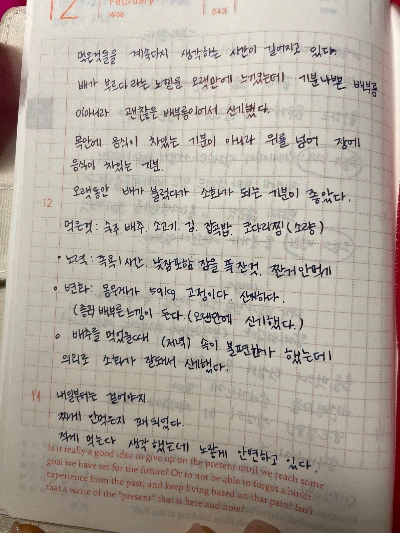 12 February
WED
543
먹은것들을 계속다시 생각하는 시간이 길어지고 있다.
배가 부르다라는 느낌을 오랫만에 느꼈는데 기분나쁜 배부름
이아니라 괜찮은 배부름이어서 신기했다.
목안에 음식이 차있는 기분이 아니라 위를 넘어 장에
음식이 차있는 기분.
오랫동안 배가 불렀다가 소화가 되는 기분이 좋았다.
12
먹은것: 숙주 배추, 소고기, 김, 잡곡밥, 코다리찜 (소량)
노력: 족욕 1시간, 낮잠포함 잠을 푹잔것, 짠거안먹기
변화: 몸무게가 59kg 고정이다. 신기하다.
(배부른느낌이 든다. (오랜만에 신기했다.)
배추를 먹었을때 (저녁) 속이 불편할까 했는데
의외로 소화가 잘돼서 신기했다.
내일부터는 걸어야지.
짜게 안먹은지 되었다.
적게 먹는다 생각했는데 노랗게 안변하고 있다.
Is it really a good idea to give up on the present until we reach some
goal we have set for the future? Or to not be able to forget a bitter
experience from the past, and keep living based on that pain? Isn't
that a waste of the "present" that is here and now?